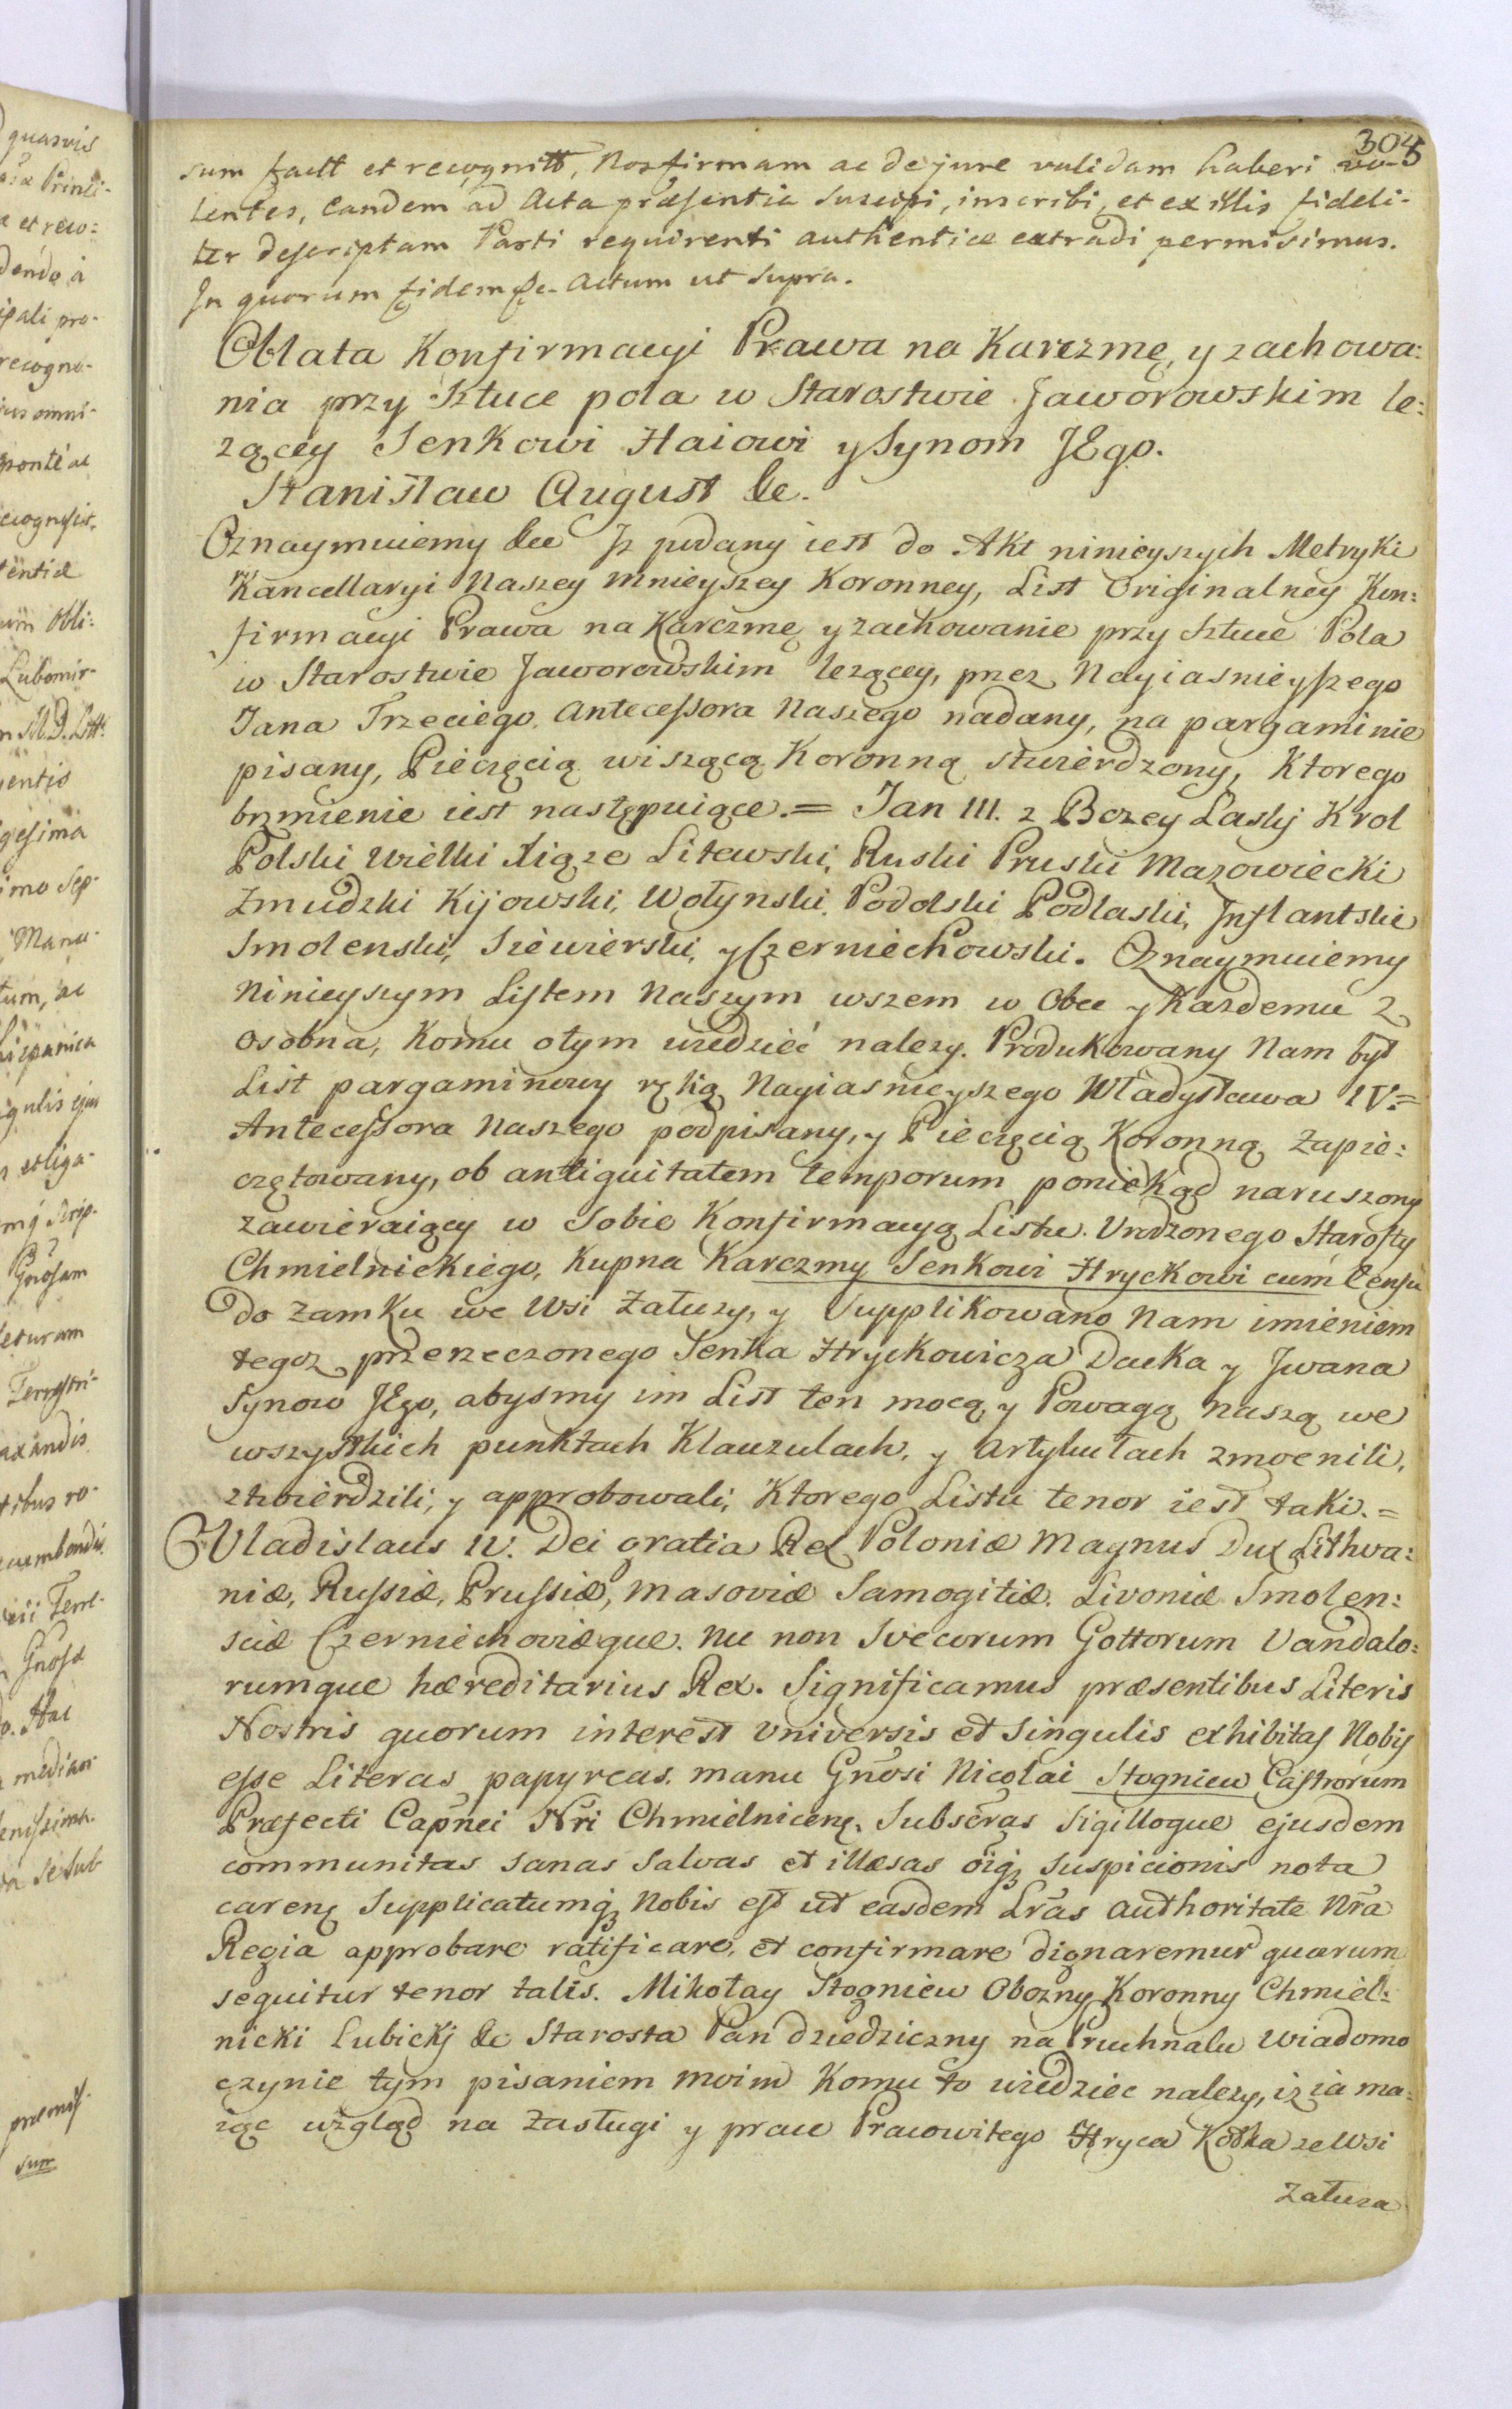 304
5
sum fact et recognitt, Nos firmam ac de jure validam haberi vo-
lentes, Eandem ad Acta præsentia suscipi, inscribi, et ex illis fideli-
ter descriptam Parti requirenti authentice extradi permisimus.
In quorum fidem &c. Actum ut Supra.
Oblata Konfirmacyi Prawa na Karczmę y zachowa:
nia przy Sztuce pola w Starostwie Jaworowskim le:
zącey Senkowi Haiowi y Synom JEgo.
Stanisław August &c.
Oznaymuiemy &cc Iz podany iest do Akt ninieyszych Metryki
Kancellaryi Naszey Mnieyszey Koronney, List Originalney Kon:
firmacyi Prawa na Karczmę y zachowanie przy Sztuce Pola
w Starostwie Jaworowskim lezącey, przez Nayiasnieyszego
Jana Trzeciego Antecessora Naszego nadany, na pargaminie
pisany, Pieczęcią wiszącą Koronną stwierdzony, Ktorego
brzmienie iest następuiące. = Jan III. z Bozey Laski Krol
Polski Wielki Xiąze Litewski, Ruski Pruski Mazowiecki
Zmudzki Kijowski, Wołynski, Podolski Podlaski, Inflantski
Smolenski, Siewierski, y Czerniechowski. Oznaymuiemy
Ninieyszym Listem Naszym wszem w Obec y Kazdemu z
osobna, Komu otym wiedzieć nalezy. Produkowany Nam był
List pargaminowy ręką Nayiasnieyszego Władysława IV. =
Antecessora Naszego podpisany, y Pieczęcią Koronną Zapie:
czętowany, ob antiquitatem temporum poniekąd naruszony
zawieraiący w Sobie Konfirmacyą Listu Urodzonego Starosty
Chmielnickiego, Kupna Karczmy Senkowi Hryckowi cum Censu
do Zamku we Wsi Załuzy, y Supplikowano Nam imieniem
tegoz przerzeczonego Senka Hryckowicza Dacka y Jwana
Synow JEgo, abysmy im List ten mocą y Powagą naszą we
wszystkich punktach Klauzulach, y Artykułach zmocnili,
ztwierdzili, y approbowali, Ktorego Listu tenor iest taki. =
Vladislaus IV. Dei gratia Rex Poloniæ Magnus Dux Lithva:
niæ, Russiæ, Prussiæ, Masoviæ Samogitiæ, Livoniæ Smolen:
sciæ Czerniechoviæque. Nec non Svecorum Gottorum Vandalo:
rumque hæreditarius Rex. Significamus præsentibus Literis
Nostris quorum interest Universis et Singulis exhibitas Nobis
esse Literas papyreas manu Gnosi Nicolai Stogniew Castrorum
Præfecti Capnei Nri Chmielnicenę. Subscras Sigilloque ejusdem
communitas sanas salvas et illæsas oiq suspicionis nota
careñ Supplicatumq Nobis est ut easdem Lras Authoritate Nra
Regia approbare ratificare, et confirmare dignaremur quarum
sequitur tenor talis. Mikołay Stogniew Obozny Koronny Chmiel:
nicki Lubicki &c Starosta Pan dziedziczny na Pruchnalu Wiadomo
czynie tym pisaniem moim Komu to wiedziec nalezy, iz ia ma:
iąc wzgląd na Zasługi y prace Pracowitego Hryca Kotka ze Wsi
Załuza